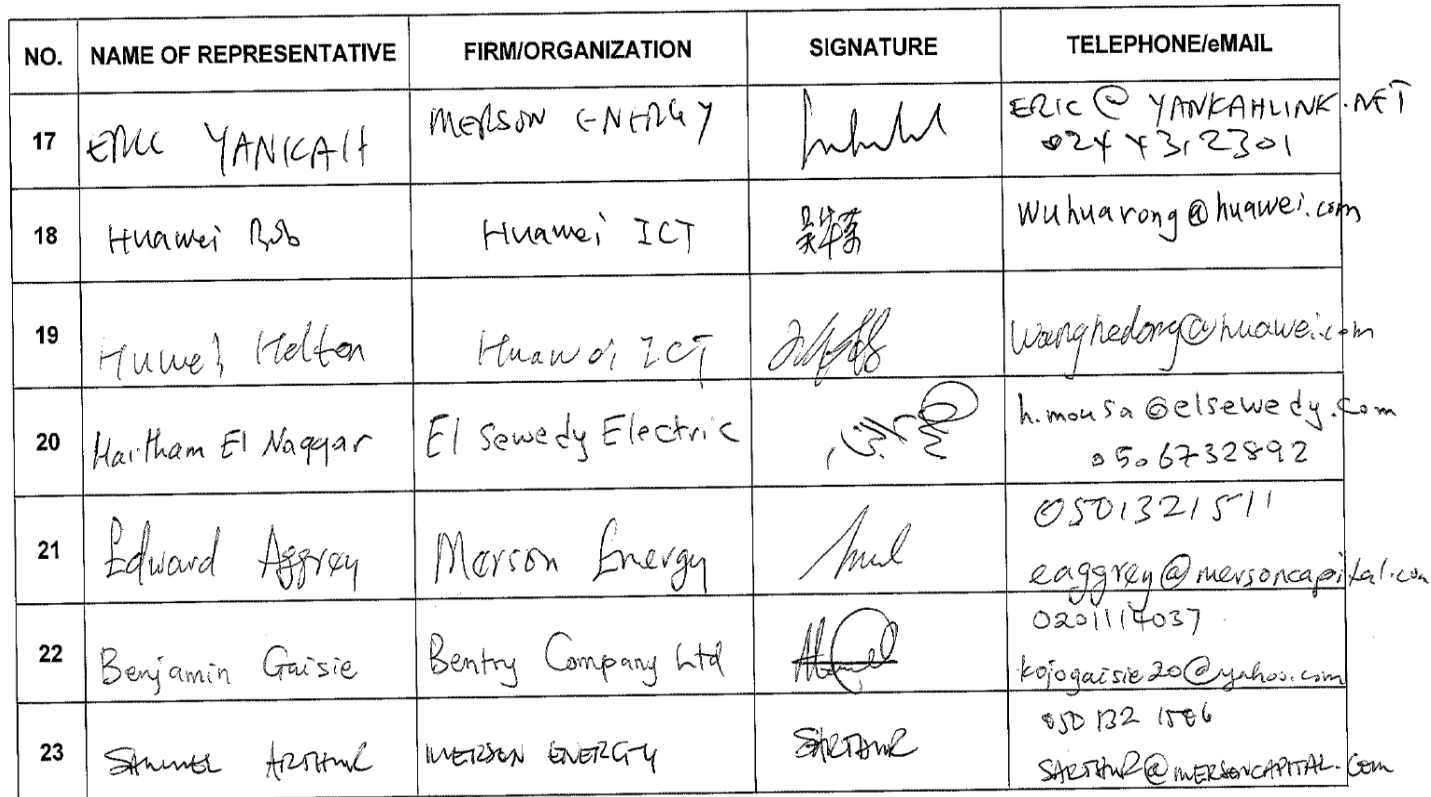 NO. NAME OF REPRESENTATIVE FIRM/ORGANIZATION SIGNATURE TELEPHONE/eMAIL
17 ERIC YANKAH MERSON ENERGY ERIC@YANKAHLINK.NET
0244312301
18 Huawei Bob Huawei ICT 吴华荣 wuhuarong@huawei.com
19 Huwei Helton Huawei ICT wanghedong@huawei.com
20 Haitham El Naggar El Sewedy Electric h.mousa@elsewedy.com
0506732892
21 Edward Aggrey Merson Energy 0501321511
eaggrey@mersoncapital.com
22 Benjamin Gaisie Bentry Company Ltd 0201114037
kojogaisie20@yahoo.com
23 SAMUEL ARTHUR MERSON ENERGY SARTHUR 050 132 1506
SARTHUR@MERSONCAPITAL.Com